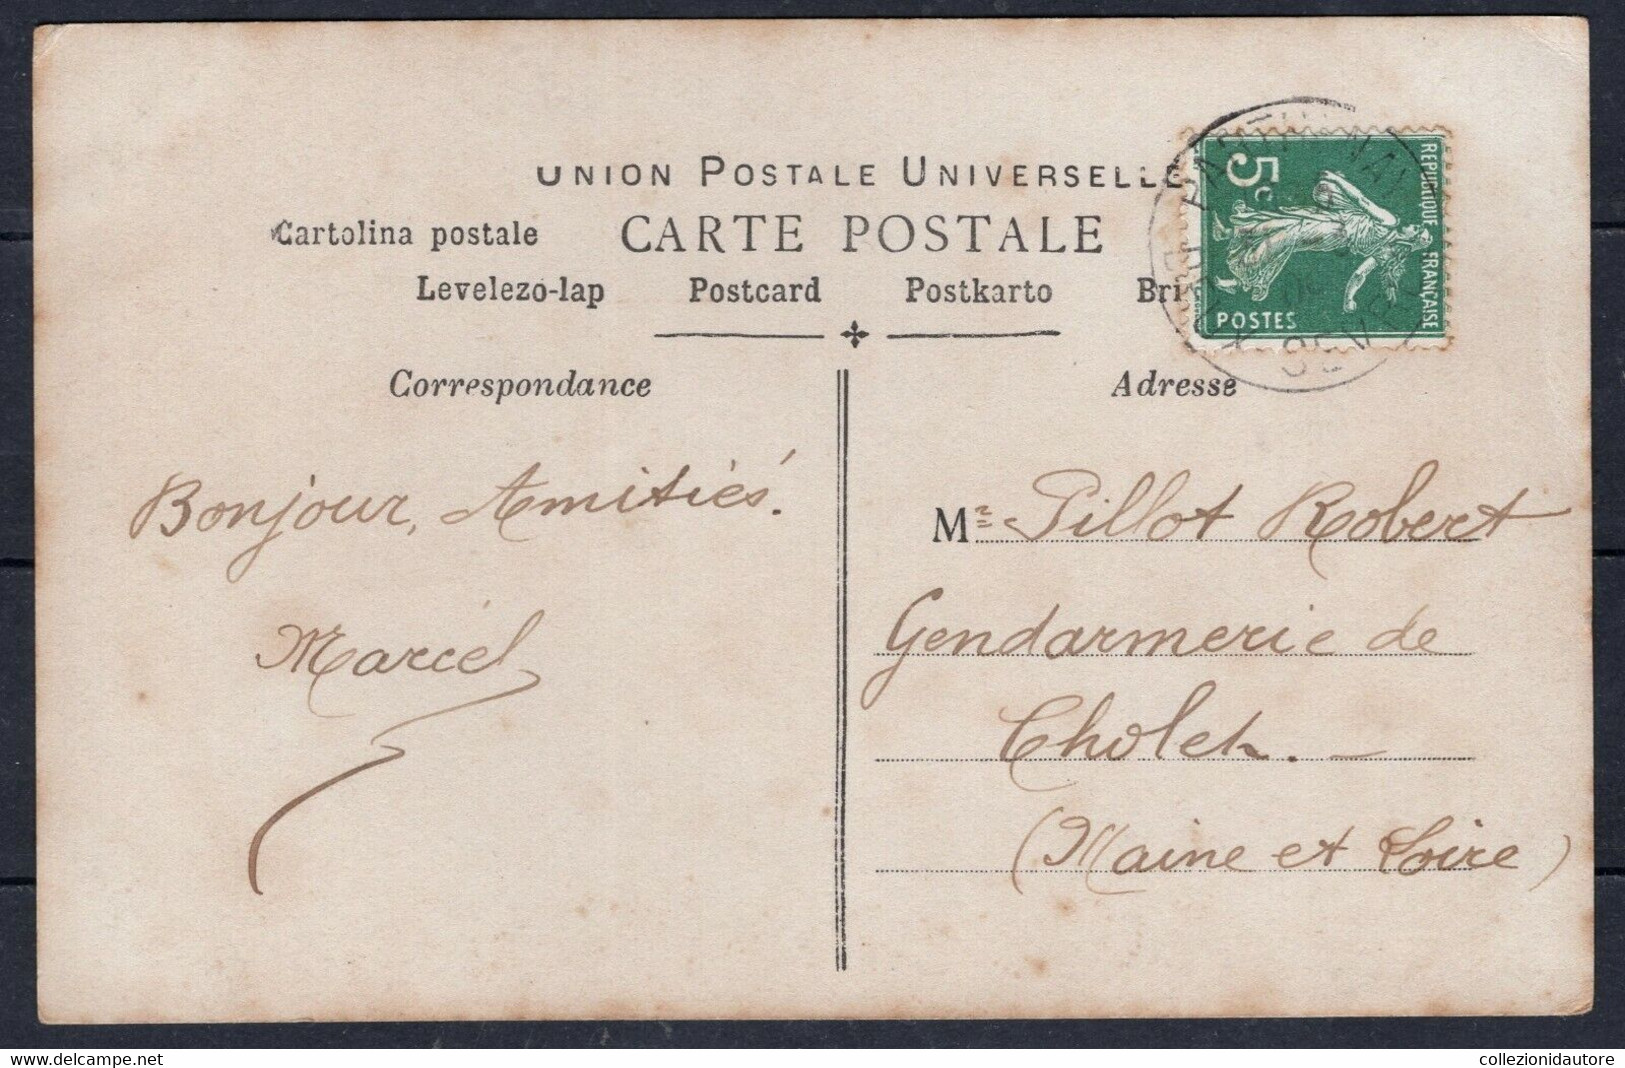 UNION POSTALE UNIVERSELLE
Cartolina postale CARTE POSTALE
Levelezo-lap Postcard Postkarto Bri
5c
REPUBLIQUE FRANÇAISE
POSTES
PARTHENAY
Correspondance
Adresse
Bonjour, Amitiés.
Marcel
Mr Pillot Robert
Gendarmerie de
Cholet. -
(Maine et Loire)
delcampe.net
collezionidautore